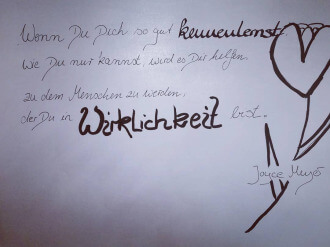 Wenn Du Dich so gut kennenlernst,
wie Du nur kannst, wird es Dir helfen,
zu dem Menschen zu werden,
der Du in Wirklichkeit bist.
Joyce Meyer